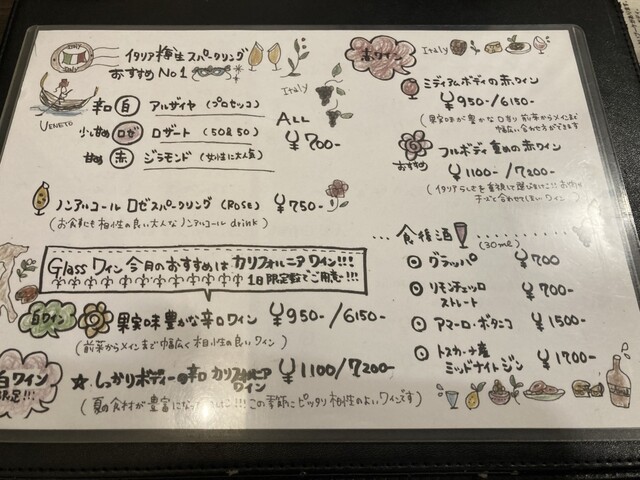 ITALY
イタリア極生スパークリング
おすすめNo1
Italy
VENETO
辛口 白 アルザイヤ (プロセッコ)
小甘め ロゼ ロザート (50&50)
甘め 赤 ジラモンド (女性に大人気)
ALL
¥700-
ノンアルコール ロゼスパークリング (ROSE) ¥750-
(お食事にも相性の良い大人なノンアルコール drink)
Glass ワイン 今月のおすすめは カリフォルニア ワイン!!!
1日限定数でご用意!!!
白ワイン 果実味豊かな辛口ワイン ¥950-/6150-
(前菜からメインまで幅広く相性の良いワイン)
白ワイン
!!!
☆ しっかりボディーの辛口 カリフォルニア
ワイン ¥1100/7200-
(夏の食材が豊富になって !!! この季節にピッタリ相性のよいワインです)
赤ワイン
Italy
ミディアムボディの赤ワイン
¥950-/6150-
(果実味が豊かな 前菜からメインまで
幅広い合わせ方ができます
おすすめ
フルボディ 重めの赤ワイン
¥1100-/7200-
(イタリアらしさを重視して選びました!!
チーズと合わせてほしいワイン)
食後酒
(30ml)
グラッパ ¥700
リモンチェッロ
ストレート ¥700-
アマーロ・ボタニコ ¥1500-
トスカーナ産
ミッドナイトジン ¥1700-